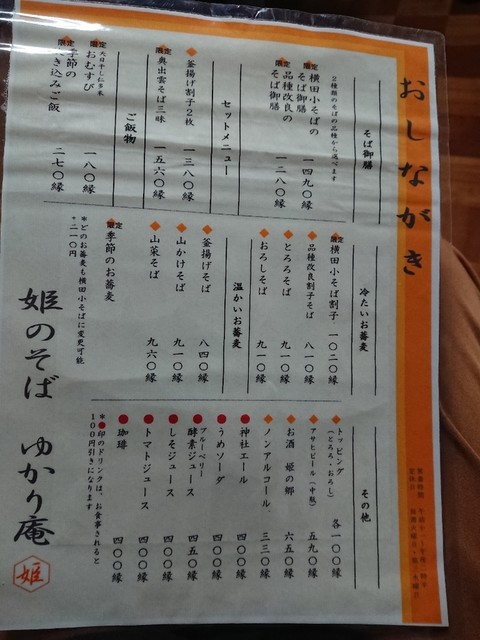 おしながき
そば御膳
2種類のそばの品種から選べます
限定 横田小そばの
そば御膳 一四九〇縁
限定 品種改良の
そば御膳 一二八〇縁
セットメニュー
釜揚げ割子2枚 一三八〇縁
限定 奥出雲そば三昧 一五六〇縁
ご飯物
大日干し仁多米
限定 おむすび 一八〇縁
限定 季節の
炊き込みご飯 二七〇縁
冷たいお蕎麦
限定 横田小そば割子 一〇二〇縁
品種改良割子そば 八一〇縁
とろろそば 九一〇縁
おろしそば 九一〇縁
温かいお蕎麦
釜揚げそば 八四〇縁
山かけそば 九一〇縁
山菜そば 九六〇縁
限定 季節のお蕎麦
*どのお蕎麦も横田小そばに変更可能
+二一〇円
その他
トッピング
(とろろ・おろし) 各一〇〇縁
アサヒビール(中瓶) 五九〇縁
お酒 姫の郷 六五〇縁
ノンアルコール 三三〇縁
神社エール 四〇〇縁
うめソーダ 四〇〇縁
ブルーベリー
酵素ジュース 四五〇縁
しそジュース 四〇〇縁
トマトジュース 四〇〇縁
珈琲 四〇〇縁
*●印のドリンクは、お食事されると
100円引きになります
姫のそば ゆかり庵
姫
営業時間
定休日